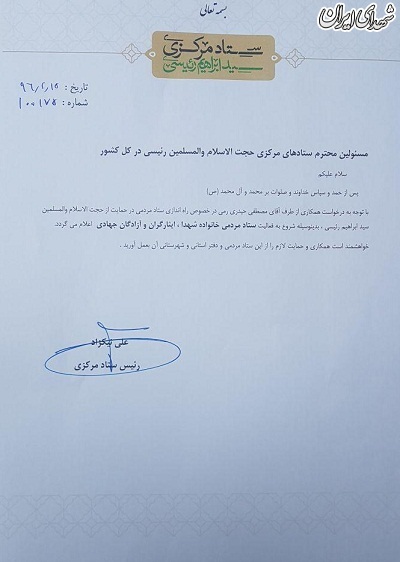 شهدای ایران
بسمه تعالی
ستاد مرکزی
سید ابراهیم رئیسی
تاریخ : ۹۶/۲/۱۸
شماره : ۱۰۰۱۷۵
مسئولین محترم ستادهای مرکزی حجت الاسلام والمسلمین رئیسی در کل کشور
سلام علیکم
پس از حمد و سپاس خداوند و صلوات بر محمد و آل محمد (ص)
با توجه به درخواست همکاری از طرف آقای مصطفی حیدری رمی در خصوص راه اندازی ستاد مردمی در حمایت از حجت الاسلام والمسلمین
سید ابراهیم رئیسی ، بدینوسیله شروع به فعالیت ستاد مردمی خانواده شهدا ، ایثارگران و آزادگان جهادی اعلام می گردد.
خواهشمند است همکاری و حمایت لازم را از این ستاد مردمی و دفتر استانی و شهرستانی آن بعمل آورید .
علی نیکزاد
رئیس ستاد مرکزی